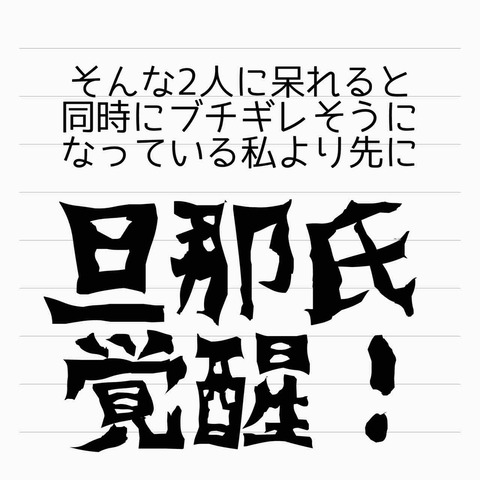 そんな2人に呆れると
同時にブチギレそうに
なっている私より先に
旦那氏
覚醒！